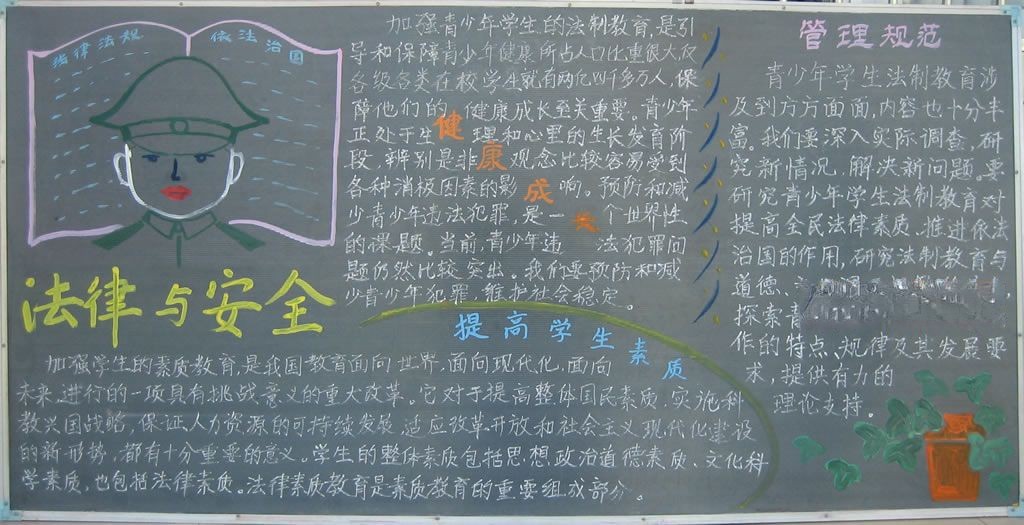 法律法规
依法治国
加强青少年学生的法制教育,是引
导和保障青少年健康所占人口比重很大,仅
各级各类在校学生就有两亿四千多万人,保
障他们的健康成长至关重要。青少年
正处于生理和心里的生长发育阶
段,辨别是非观念比较容易受到
各种消极因素的影响。预防和减
少青少年违法犯罪,是一个世界性
的课题。当前,青少年违法犯罪问
题仍然比较突出。我们要预防和减
少青少年犯罪,维护社会稳定。
健康成长
法律与安全
提高学生素质
加强学生的素质教育,是我国教育面向世界,面向现代化,面向
未来,进行的一项具有挑战意义的重大改革。它对于提高整体国民素质,实施科
教兴国战略,保证人力资源的可持续发展,适应改革开放和社会主义现代化建设
的新形势,都有十分重要的意义。学生的整体素质包括思想政治道德素质、文化科
学素质,也包括法律素质。法律素质教育是素质教育的重要组成部分。
管理规范
青少年学生法制教育涉
及到方方面面,内容也十分丰
富。我们要深入实际调查,研
究新情况,解决新问题。要
研究青少年学生法制教育对
提高全民法律素质、推进依法
治国的作用,研究法制教育与
道德、
探索青
作的特点、规律及其发展要
求,提供有力的
理论支持。